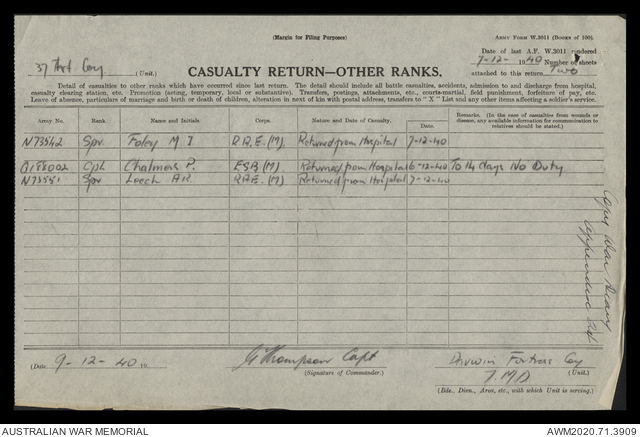 (Margin for Filing Purposes)
Army Form W.3011 (Books of 100).
Date of last A.F. W.3011 rendered
7-12-1940 Number of sheets
attached to this return Two
37 Fort Coy (Unit.)
CASUALTY RETURN—OTHER RANKS.
Detail of casualties to other ranks which have occurred since last return. The detail should include all battle casualties, accidents, admission to and discharge from hospital,
casualty clearing station, etc. Promotion (acting, temporary, local or substantive). Transfers, postings, attachments, etc., courts-martial, field punishment, forfeiture of pay, etc.
Leave of absence, particulars of marriage and birth or death of children, alteration in next of kin with postal address, transfers to "X" List and any other items affecting a soldier's service.
Army No. Rank. Name and Initials. Corps. Nature and Date of Casualty. Date. Remarks. (In the case of casualties from wounds or disease, any available information for communication to relatives should be stated.)
N73542 Spr Foley M J R.A.E. (M) Returned from Hospital 7-12-40
Cpl Chalmers P. ESB (M) Returned from Hospital 6-12-40 To 14 days No Duty
N73551 Spr Leech AR R.A.E. (M) Returned from Hospital 7-12-40
Copy War Diary
Appendix
(Date 9-12-40 19
G Thompson Capt
(Signature of Commander.)
Darwin Fortress Coy
(Unit.)
7. M D
(Bde., Divn., Area, etc., with which Unit is serving.)
AUSTRALIAN WAR MEMORIAL
AWM2020.71.3909